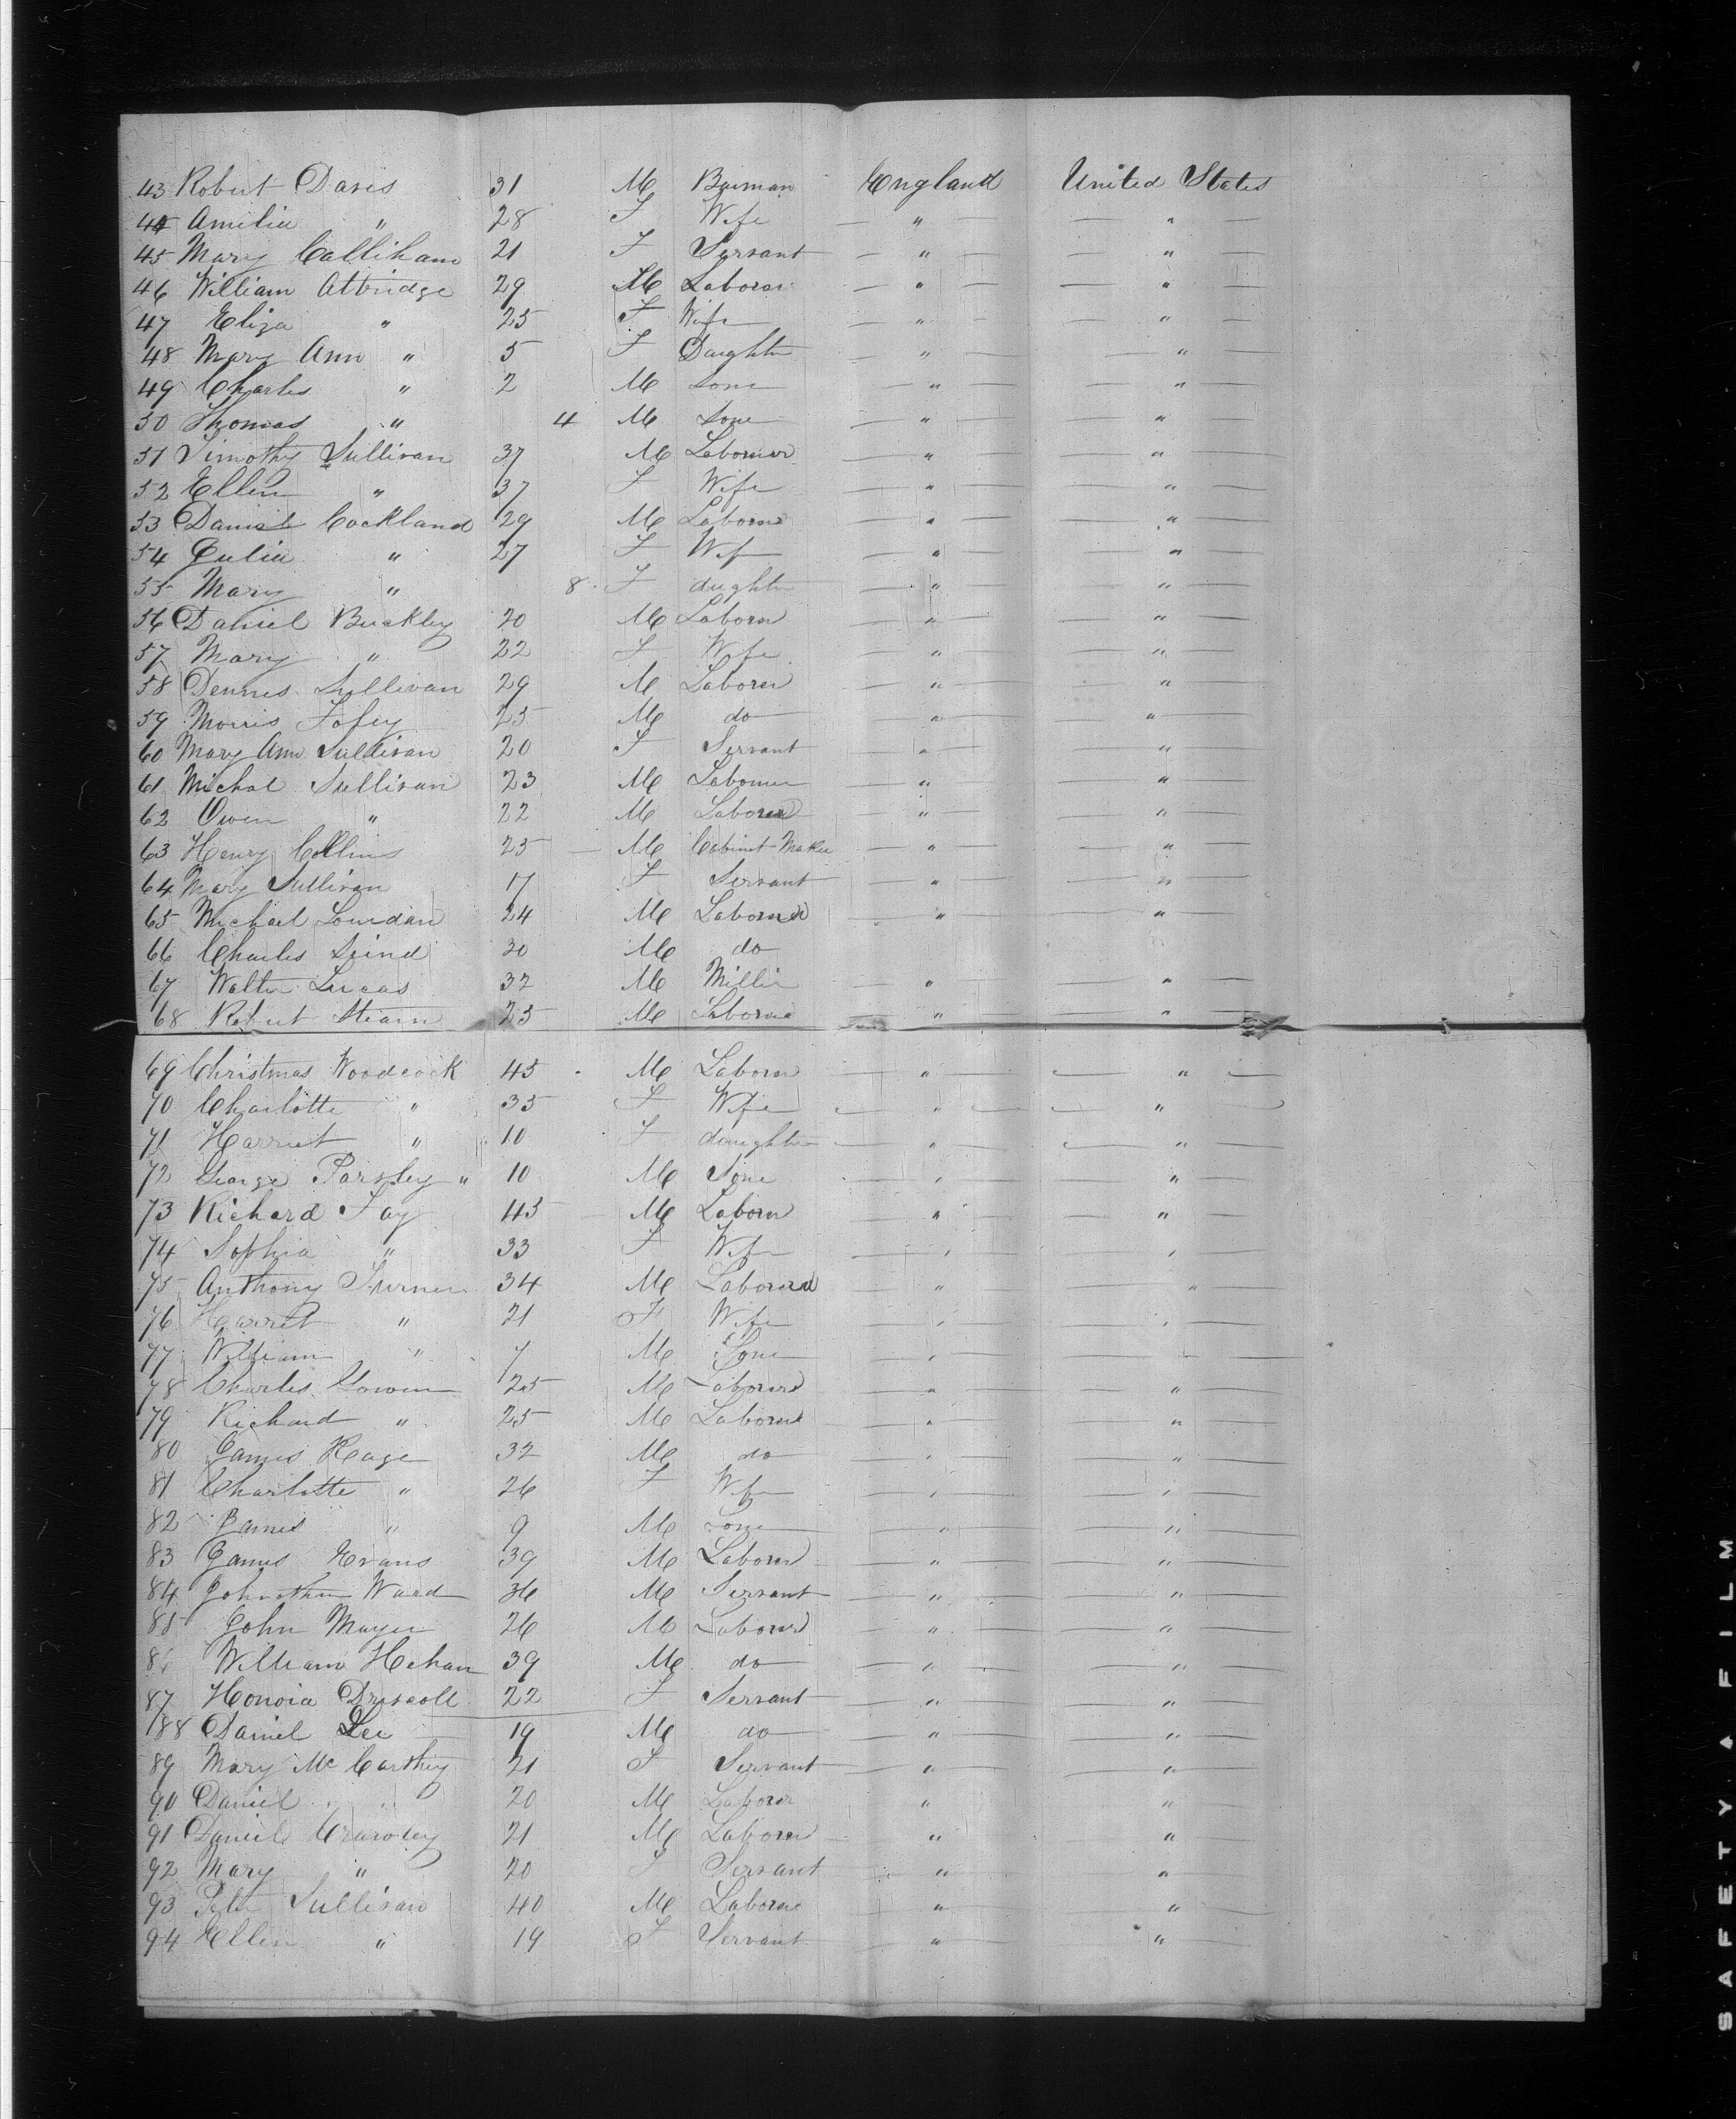 43 Robert Davis 31 M Barman England United States
44 Amilia " 28 F Wife " "
45 Mary Callihan 21 F Servant " "
46 William Attridge 29 M Laborer " "
47 Eliza " 25 F Wife " "
48 Mary Ann " 5 F Daughter " "
49 Charles " 2 M Sone " "
50 Thomas " 4 M Sone " "
51 Timothy Sullivan 37 M Labourer " "
52 Ellen " 37 F Wife " "
53 Daniel Cockland 29 M Laborer " "
54 Julia " 27 F Wife " "
55 Mary " 8 F daughter " "
56 Daniel Buckley 20 M Laborer " "
57 Mary " 22 F Wife " "
58 Dennis Sullivan 29 M Laborer " "
59 Morris 25 M do " "
60 Mary Ann Sullivan 20 F Servant " "
61 Michal Sullivan 23 M Labourer " "
62 Owen " 22 M Laborer " "
63 Henry Collins 25 M Cabinet Maker " "
64 Mary Sullivan 17 F Servant " "
65 Michael 24 M Laborer " "
66 Charles 30 M do
67 Walter Lucas 32 M Miller " "
68 Robert Stearn 25 M Laborer " "
69 Christmas Woodcock 45 M Laborer " "
70 Charlotte " 35 F Wife " "
71 Harriet " 10 F daughter " "
72 George Parsley " 10 M Sone " "
73 Richard Fay 45 M Laborer " "
74 Sophia " 33 F Wife " "
75 Anthony Turner 34 M Laborer " "
76 Harret " 21 F Wife " "
77 William " M Sone " "
78 Charles Gowen 25 M Laborer " "
79 Richard " 25 M Laborer " "
80 James Keage 32 M do " "
81 Charlotte " 26 F Wife " "
82 James " 9 M Sone " "
83 James Evans 39 M Laborer " "
84 Johnathan Ward 36 M Servant " "
85 John Mayer 26 M Laborer " "
86 William Hehan 39 M do " "
87 Honora Driscoll 22 F Servant " "
88 Daniel Lee 19 M do " "
89 Mary McCarthy 21 F Servant " "
90 Daniel " 20 M Laborer " "
91 Daniel Crawley 21 M Laborer " "
92 Mary " 20 F Servant " "
93 Peter Sullivan 40 M Laborer " "
94 Ellen " 19 F Servant " "
SAFETY ▲ FILM